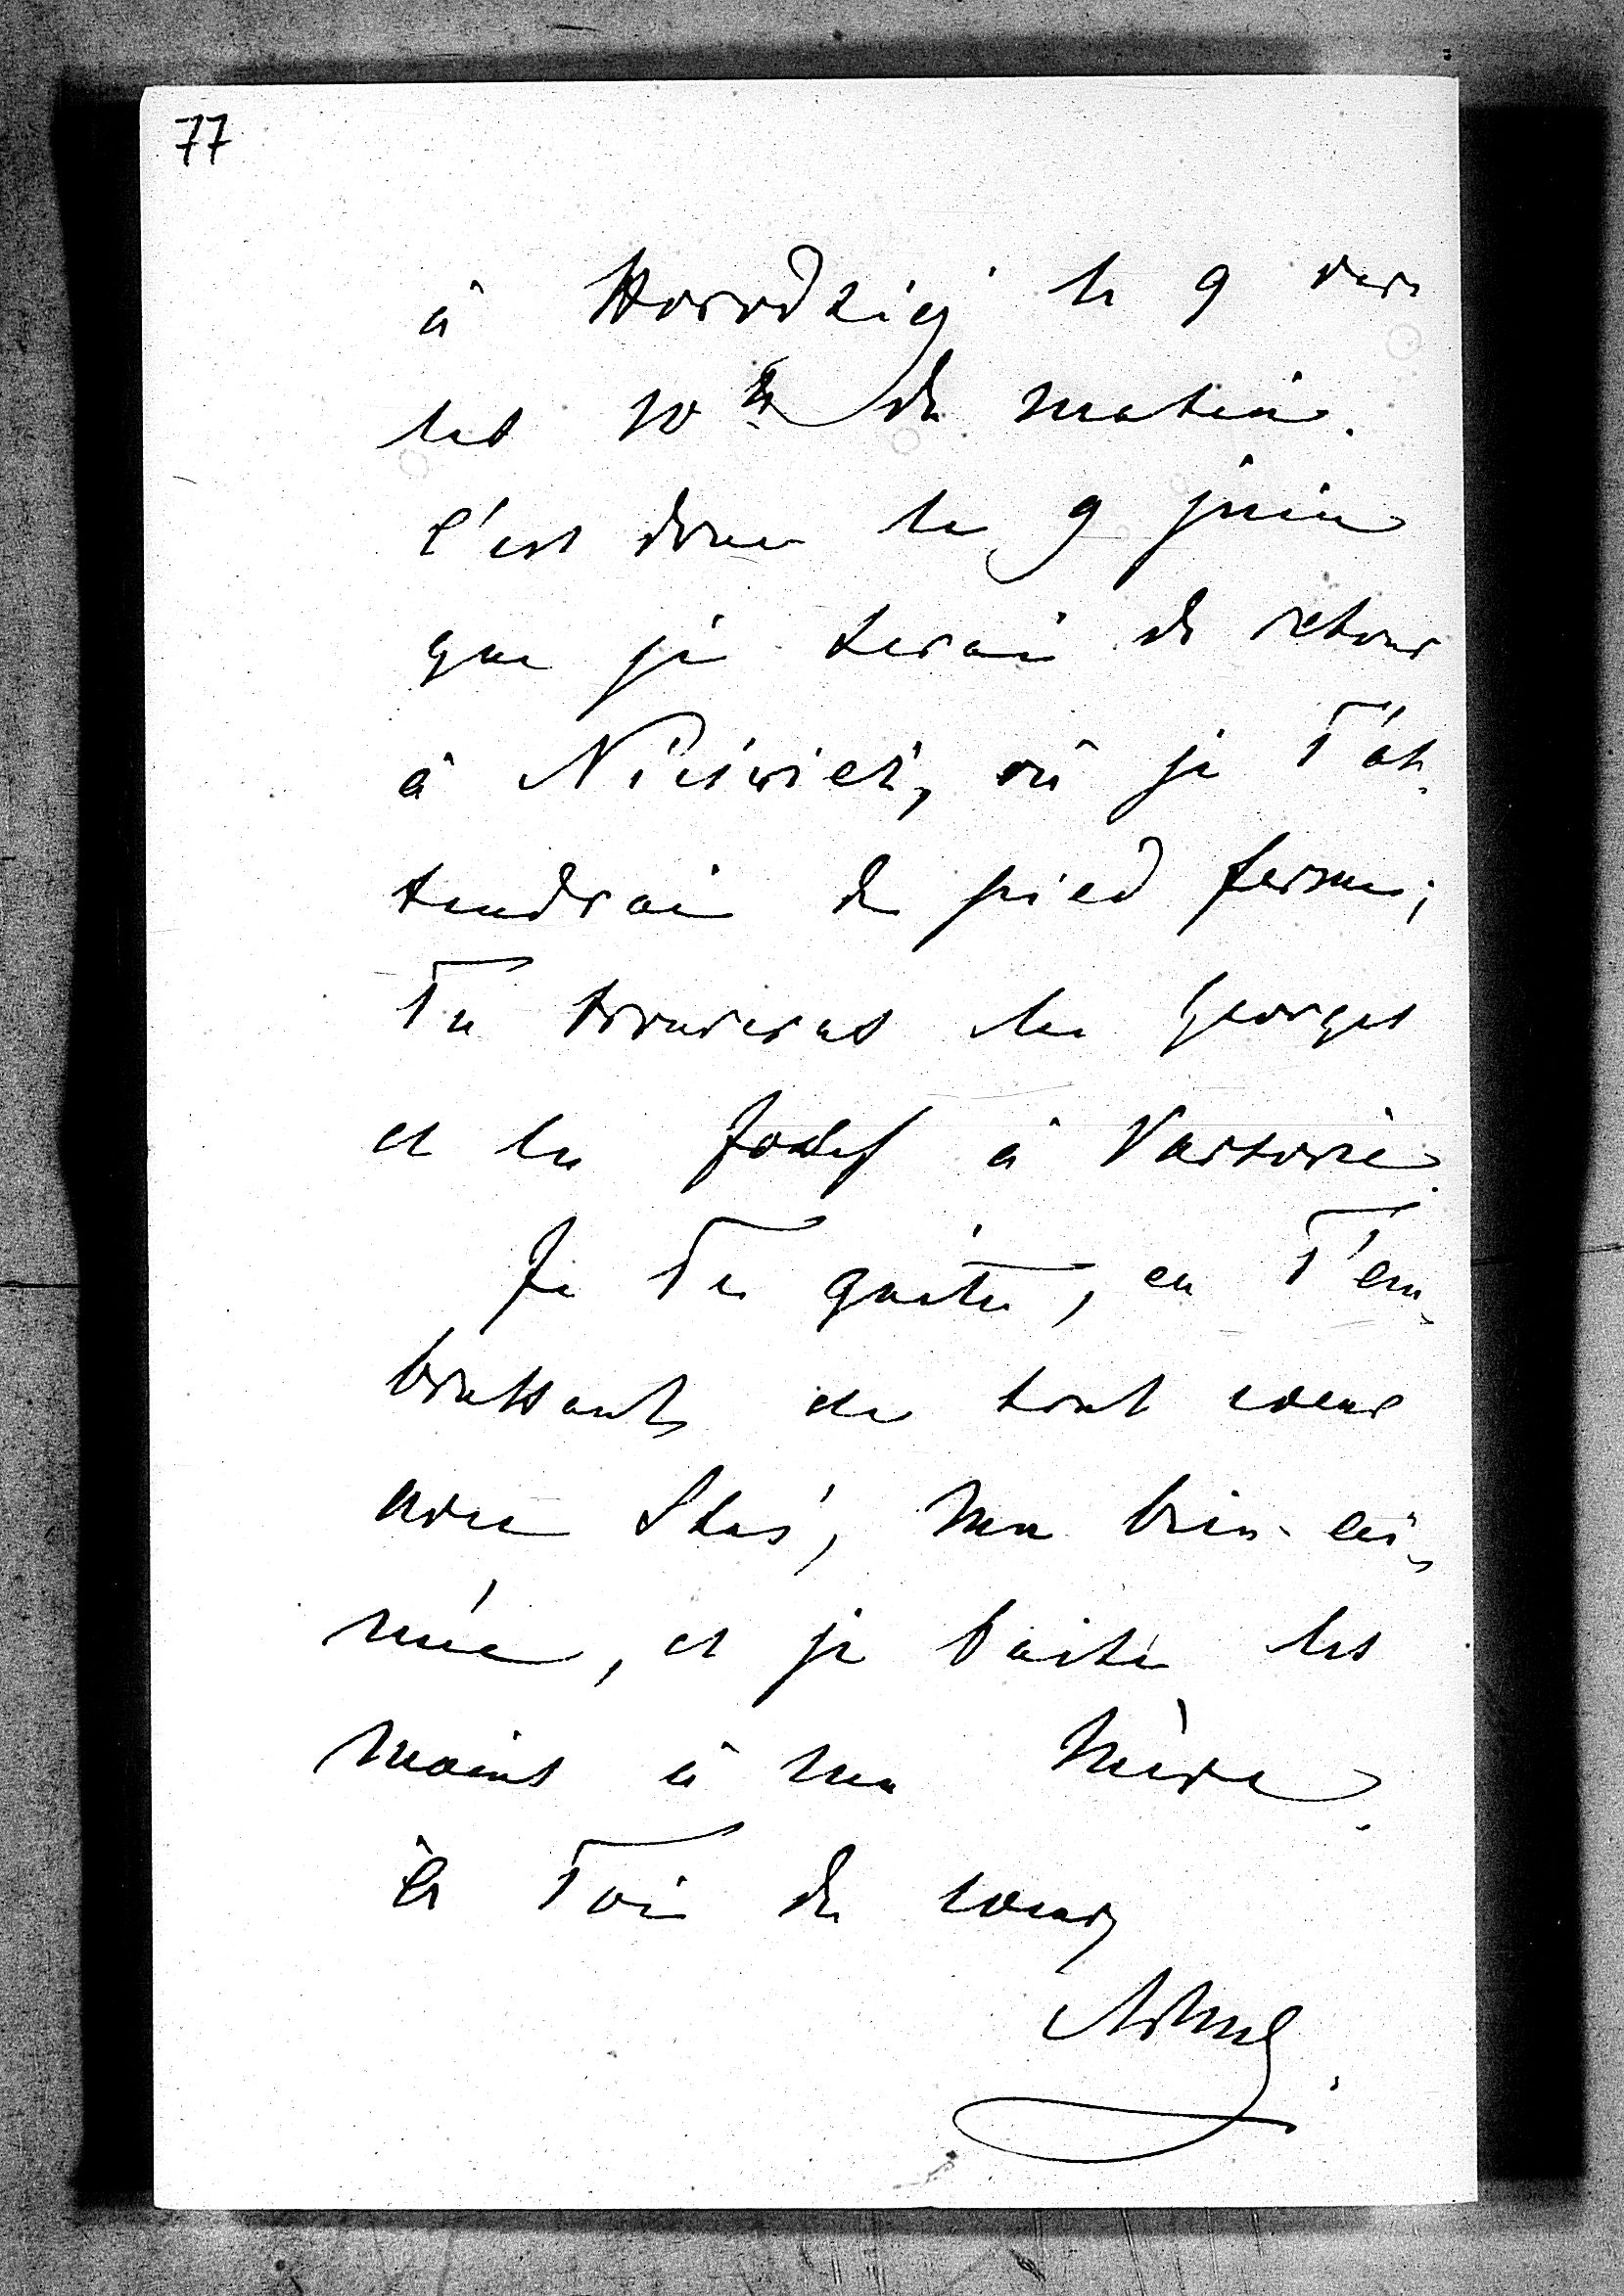 77
à Horodziej le 9 vers
les 10 h. du matin.
C'est donc le 9 juin
que je serai de retour
à Nieśwież, où je T'at-
tendrai de pied ferme;
Tu trouveras les Georges
et les Josef à Varsovie.
Je Te quitte, en T'em-
brassant de tout coeur
avec Staś, ma bien-ai-
mée, et je baise les
mains à ma Mère.
à Toi de coeur